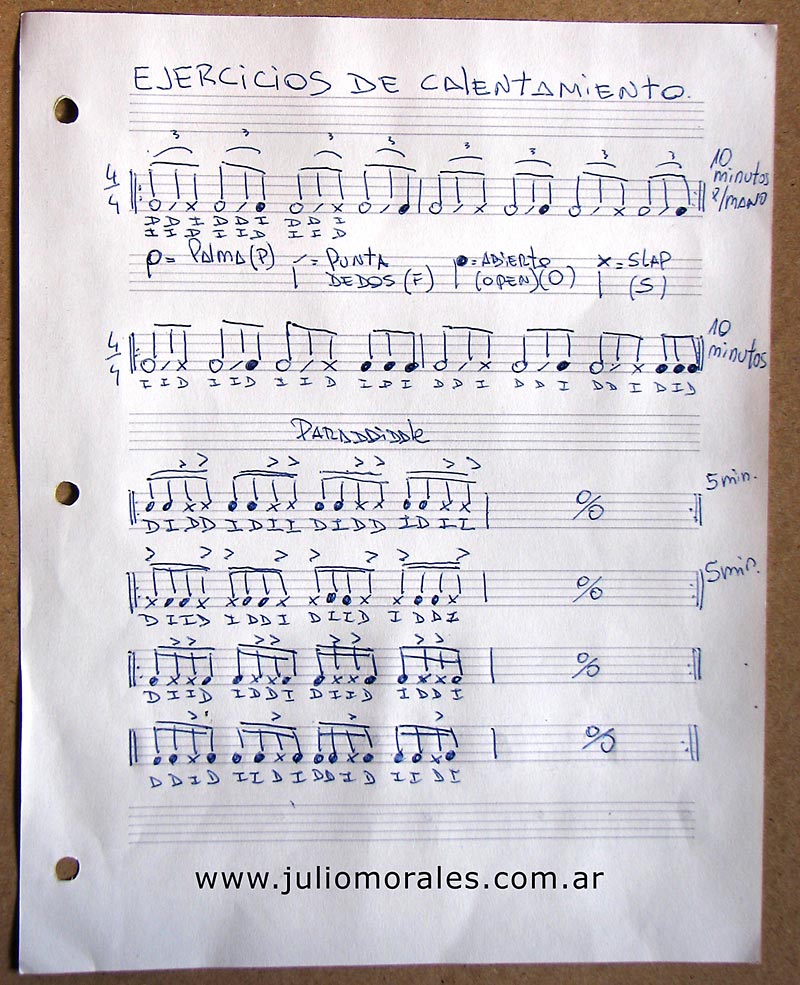 EJERCICIOS DE CALENTAMIENTO.
3 3 3 3 3 3 3 3
4/4 10 minutos P/MANO
D D I D D I D D I
I I D I I D
P= PALMA(P) /= PUNTA DEDOS (F) ●=ABIERTO (OPEN)(O) x=SLAP (S)
4/4 10 minutos
I I D I I D I I D I D I D D I D D I D D I D I D
PARADDIDDLE
> > > > > > > > 5 min.
D I D D I D I I D I D D I D I I %
> > > > > > > > 5 min.
D I I D I D D I D I I D I D D I %
> > > > > > > >
D I I D I D D I D I I D I D D I %
> > > >
D D I D I I D I D D I D I I D I %
www.juliomorales.com.ar